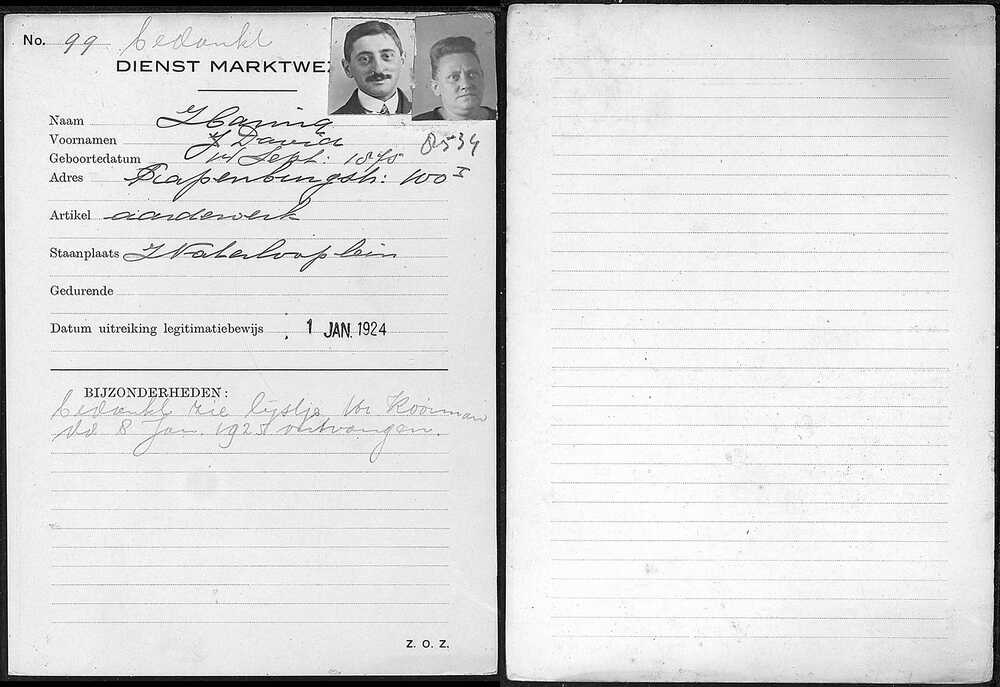 No. 99 bedankt
DIENST MARKTWE
Naam Haring
Voornamen David
Geboortedatum 14 Sept: 1875
8534
Adres Rapenburgstr: 100 I
Artikel aardewerk
Staanplaats Waterlooplein
Gedurende
Datum uitreiking legitimatiebewijs 1 JAN. 1924
BIJZONDERHEDEN:
bedankt zie lijstje Kooiman
dd 8 Jan. 1925 ontvangen.
Z. O. Z.